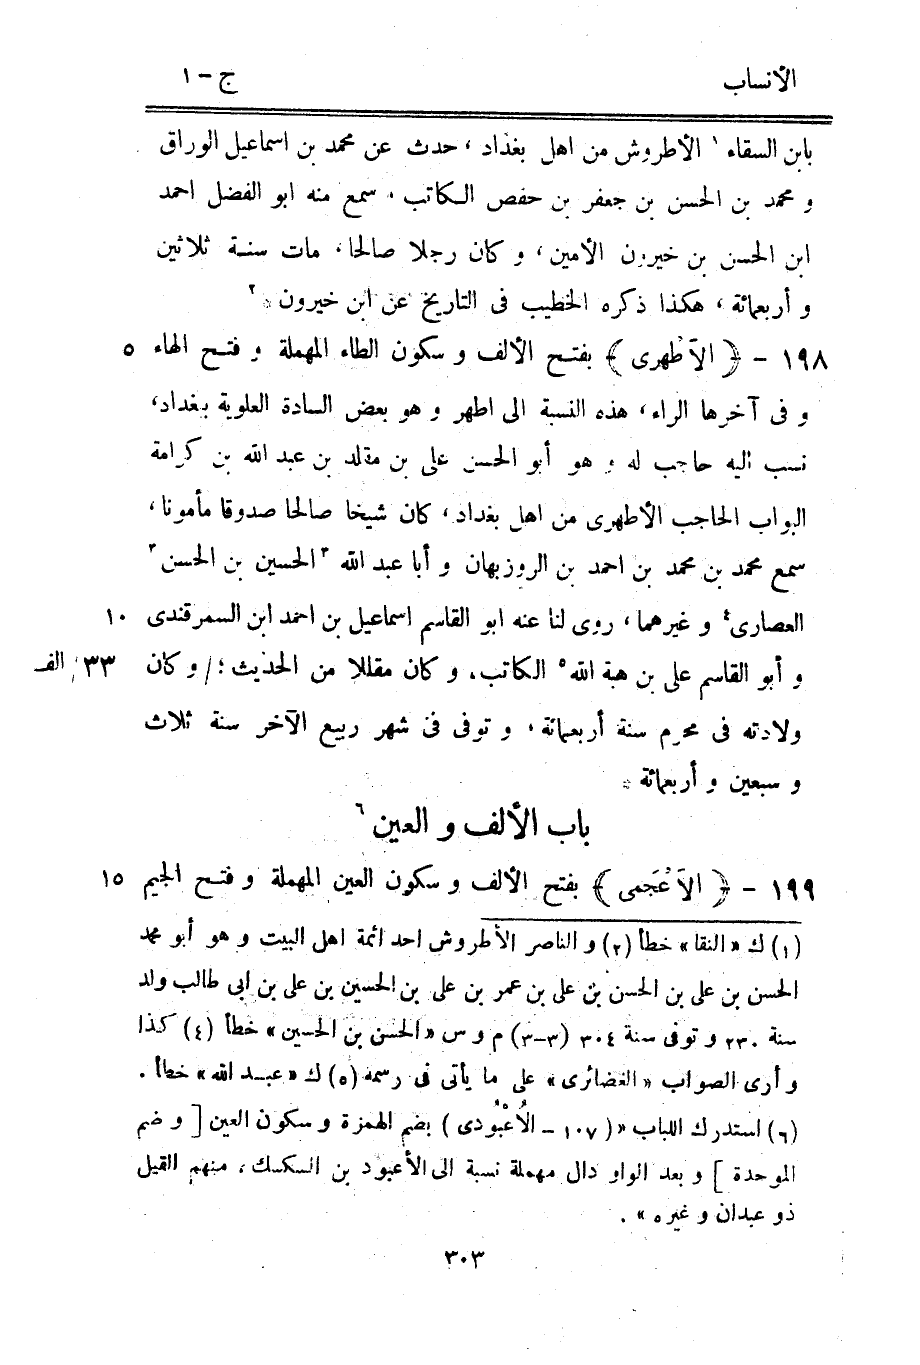 الأنساب ج - ١
بابن السقاء ١ الأطروش من اهل بغداد، حدث عن محمد بن اسماعيل الوراق
و محمد بن الحسن بن جعفر بن حفص الكاتب، سمع منه ابو الفضل احمد
ابن الحسن بن خيرون الأمين، و كان رجلا صالحا، مات سنة ثلاثين
و أربعمائة، هكذا ذكره الخطيب فى التاريخ عن ابن خيرون ٢
١٩٨ - ﴿ الأَطْهرى ﴾ بفتح الألف و سكون الطاء المهملة و فتح الهاء ٥
و فى آخرها الراء، هذه النسبة الى اطهر و هو بعض السادة العلوية ببغداد،
نسب اليه حاجب له و هو أبو الحسن على بن مقلد بن عبد الله بن كرامة
البواب الحاجب الأطهرى من اهل بغداد، كان شيخا صالحا صدوقا مأمونا،
سمع محمد بن محمد بن احمد بن الروزبهان و أبا عبد الله ٣ الحسين بن الحسن ٣
العصارى ٤ و غيرهما، روى لنا عنه ابو القاسم اسماعيل بن احمد ابن السمرقندى ١٠
و أبو القاسم على بن هبة الله ٥ الكاتب، و كان مقللا من الحديث ؛ / و كان ٣٣/ الف
ولادته فى محرم سنة أربعمائة، و توفى فى شهر ربيع الآخر سنة ثلاث
و سبعين و أربعمائة
باب الألف و العين ٦
١٩٩ - ﴿ الأَعْجَمى ﴾ بفتح الألف و سكون العين المهملة و فتح الجيم ١٥
(١) ك «النقا» خطأ (٢) و الناصر الأطروش احد ائمة اهل البيت و هو أبو محمد
الحسن بن على بن الحسن بن على بن عمر بن على بن الحسين بن على بن ابى طالب ولد
سنة ٢٣٠ و توفى سنة ٣٠٤ (٣-٣) م و س «الحسن بن الحسين» خطأ (٤) كذا
و أرى الصواب «الغضائرى» على ما يأتى فى رسمه (٥) ك «عبد الله» خطأ.
(٦) استدرك اللباب «(١٠٧ - الأُعْبُودى) بضم الهمزة و سكون العين [ و ضم
الموحدة ] و بعد الواو دال مهملة نسبة الى الأعبود بن السكسك، منهم القيل
ذو عبدان و غيره».
٣٠٣